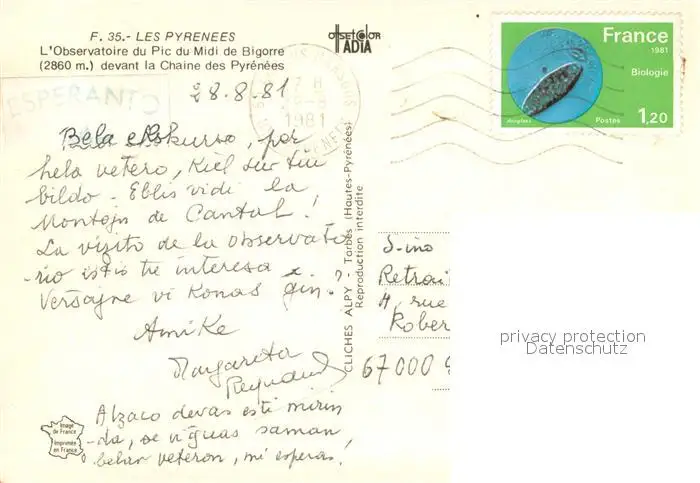 F. 35.- LES PYRENEES
L'Observatoire du Pic du Midi de Bigorre
(2860 m.) devant la Chaine des Pyrénées
OffsetColor
ADIA
ESPERANTO
28.8.81
1981
France
1981
Biologie
Postes
1,20
Bela ekskurso, por
hela vetero, Kiel sur tiu
bildo. Eblis vidi la
Montojn de Cantal!
La vizito de la observato
rio estis tre interesa
Versajne vi Konas ĝin.
Amike
Margareta
Reynaud
Alzaco devas esti mirin
-da, se vi ĝuas saman
belan veteron, mi esperas!
CLICHES ALPY - Tarbes (Hautes-Pyrénées)
Reproduction interdite
S-ino
Retrai
4, rue
Rober
67000
Image
de France
Imprimée
en France
privacy protection
Datenschutz